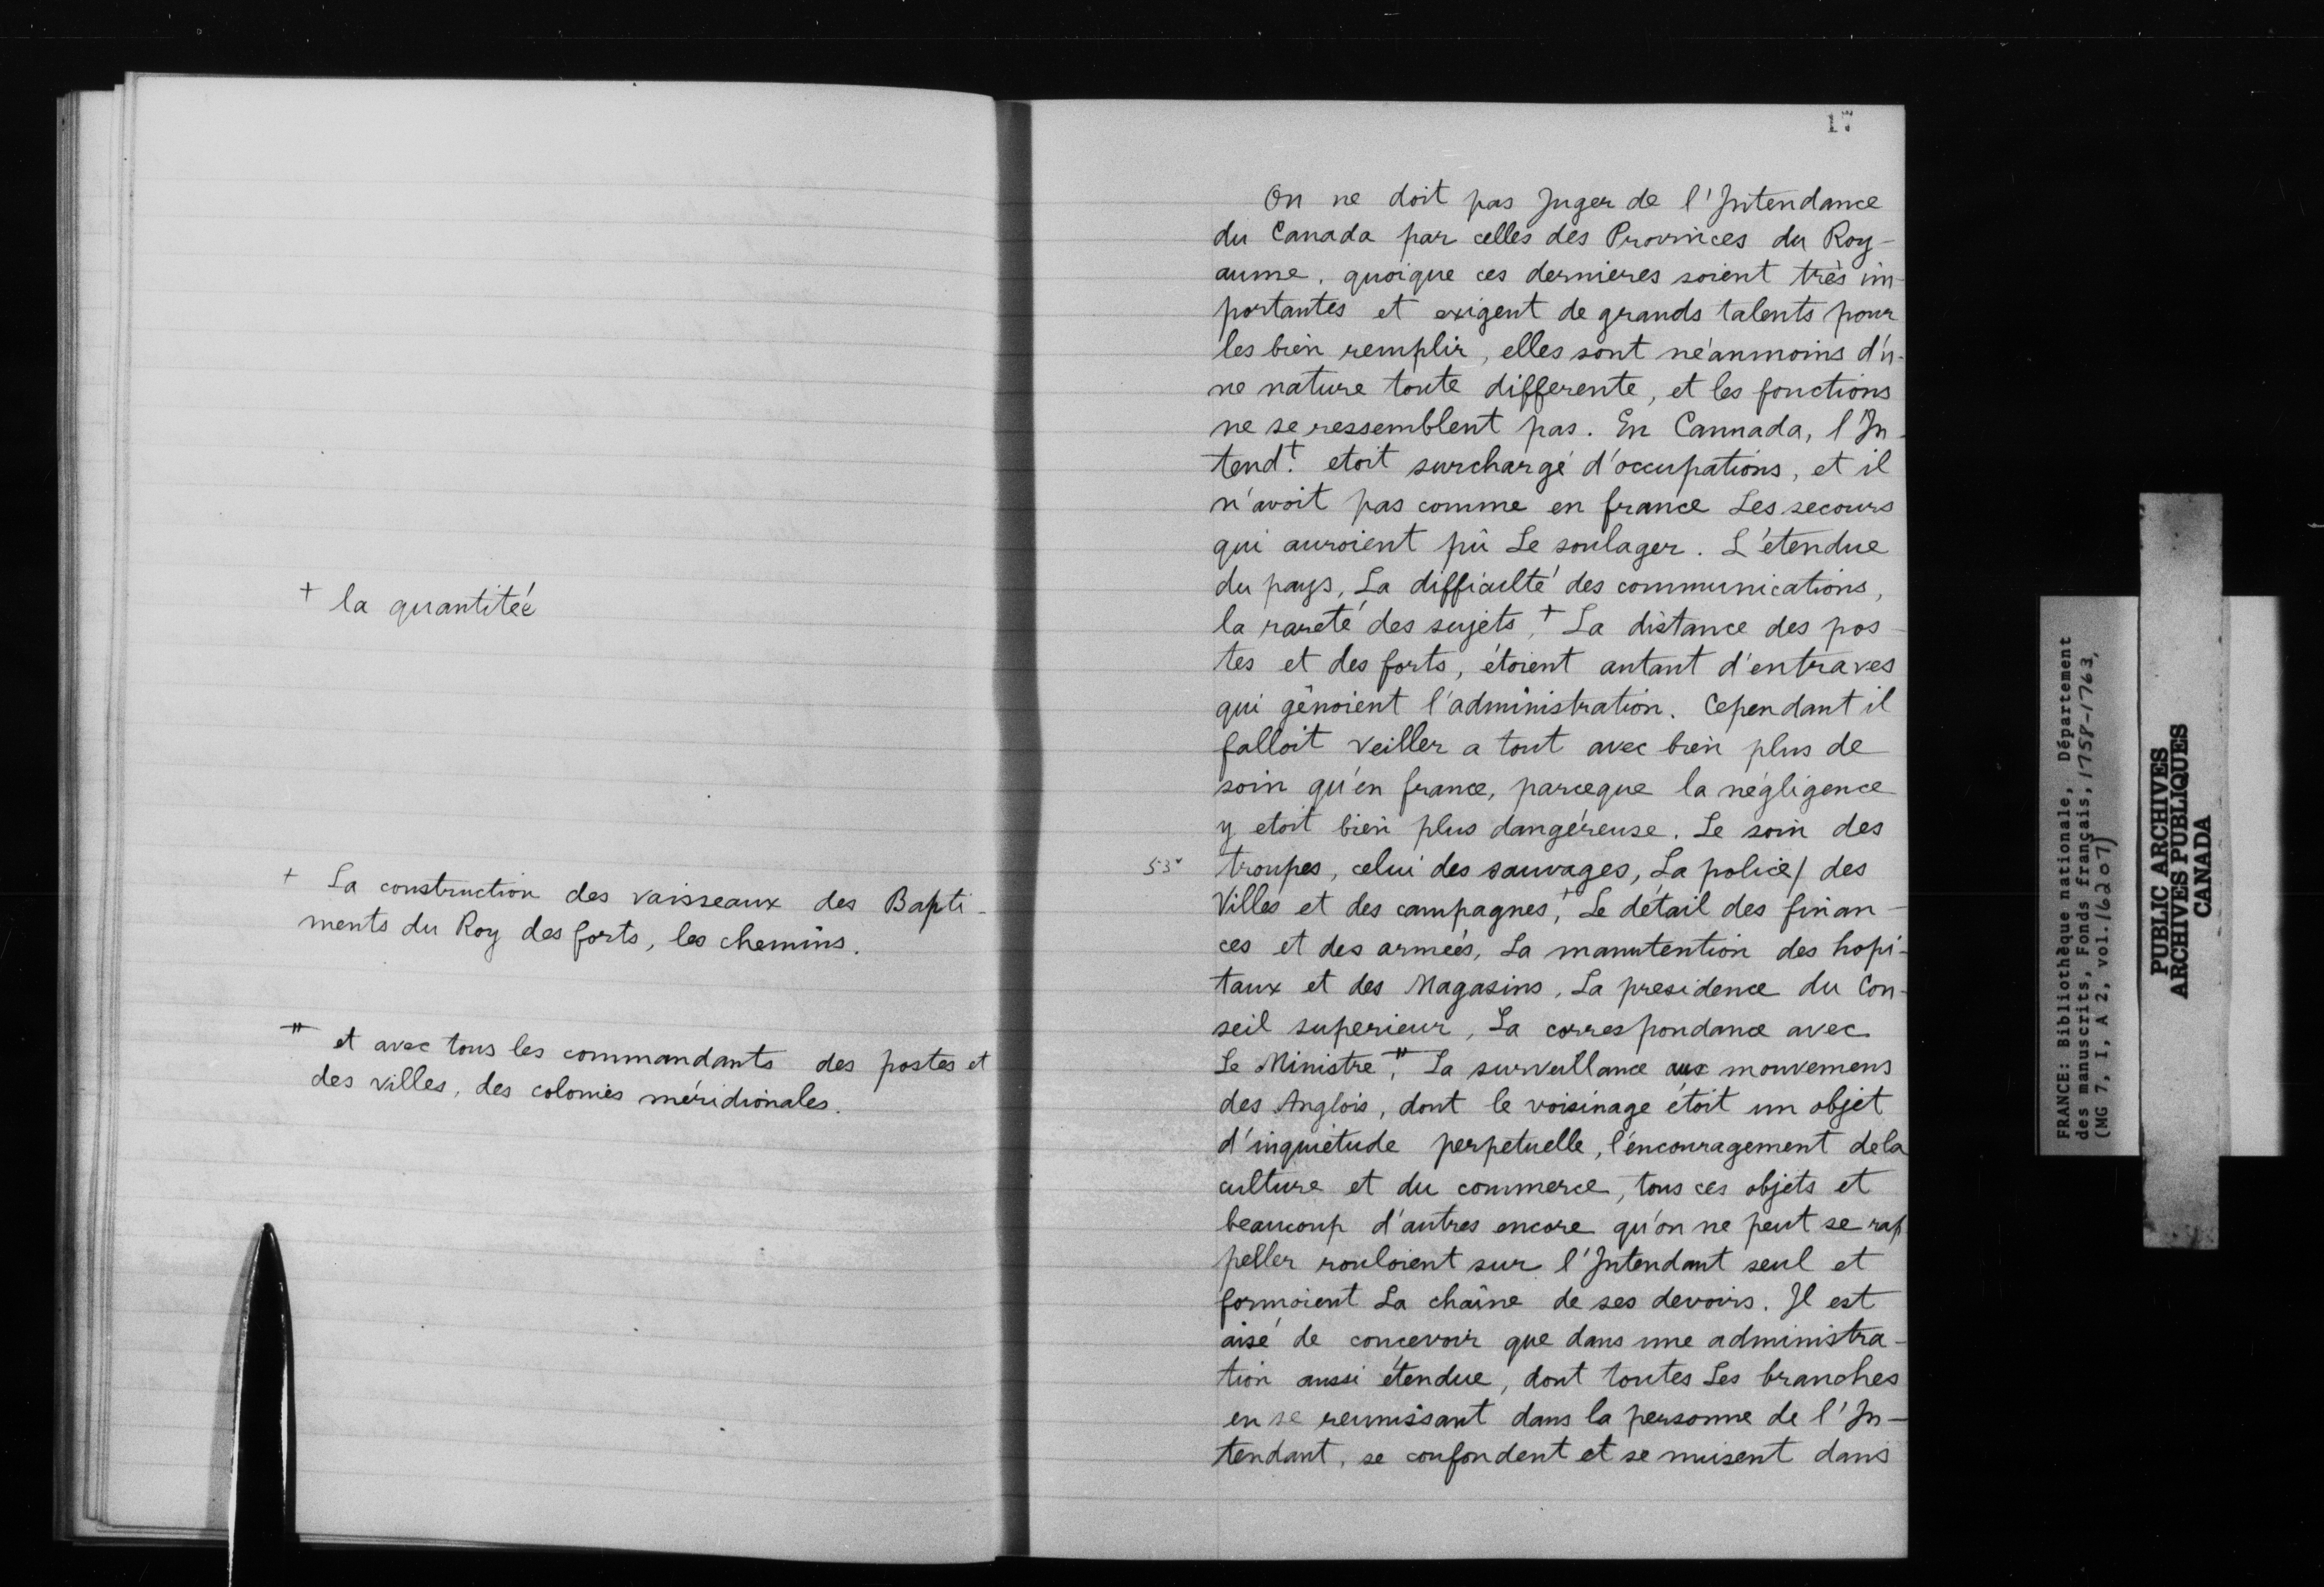 + la quantitéé
+ La construction des vaisseaux des Bapti-
ments du Roy des forts, les chemins.
" et avec tous les commandants des postes et
des villes, des colonies méridionales.
17
On ne doit pas Juger de l'Intendance
du Canada par celles des Provinces du Roy-
aume, quoique ces dernieres soient très im-
portantes et exigent de grands talents pour
les bien remplir, elles sont néanmoins d'u-
ne nature toute differente, et les fonctions
ne se ressemblent pas. En Cannada, l'In-
tend.t etoit surchargé d'occupations, et il
n'avoit pas comme en france Les secours
qui auroient pû Le soulager. L'étendue
du pays, La difficulté des communications,
la rareté des sujets, + La distance des pos-
tes et des forts, étoient autant d'entraves
qui gênoient l'administration. Cependant il
falloit veiller a tout avec bien plus de
soin qu'en france, parceque la négligence
y etoit bien plus dangéreuse. Le soin des
53v troupes, celui des sauvages, La police/ des
Villes et des campagnes, + Le détail des finan-
ces et des armées, La manutention des hopi-
taux et des Magasins, La presidence du Con-
seil superieur, La correspondance avec
Le Ministre, " La surveillance aux mouvemens
des Anglois, dont le voisinage étoit un objet
d'inquiétude perpetuelle, l'encouragement dela
culture et du commerce, tous ces objets et
beaucoup d'autres encore qu'on ne peut se rap
peller rouloient sur l'Intendant seul et
formoient La chaîne de ses devoirs. Il est
aisé de concevoir que dans une administra-
tion aussi étendue, dont toutes Les branches
en se reunissant dans la personne de l'In-
tendant, se confondent et se nuisent dans
FRANCE: Bibliothèque nationale, Département
des manuscrits, Fonds français, 1758-1763,
(MG 7, I, A 2, vol. 16207)
PUBLIC ARCHIVES
ARCHIVES PUBLIQUES
CANADA